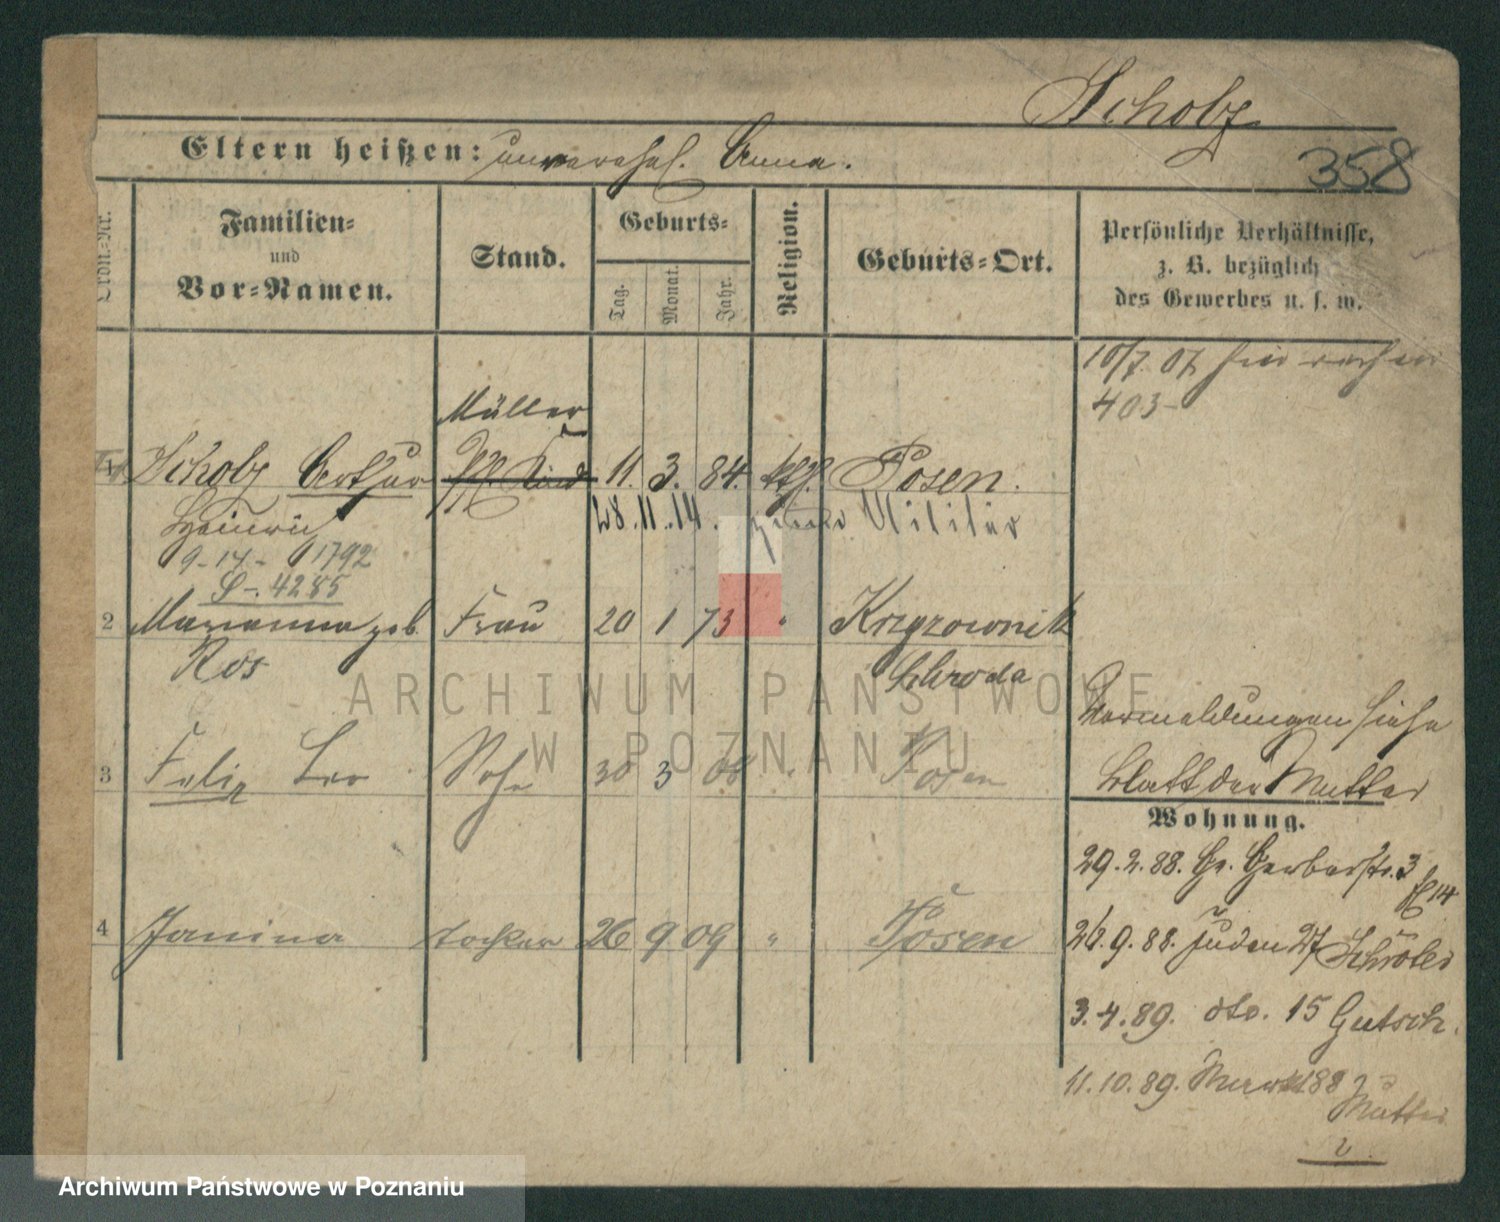 Scholz
358
Eltern heißen: unverehel. Anna.
Ordn.-Nr.
Familien-
und
Vor-Namen.
Stand.
Geburts-
Tag. Monat. Jahr.
Religion.
Geburts-Ort.
Persönliche Verhältnisse,
z. B. bezüglich
des Gewerbes u. s. w.
10/7. 07
403
Müller
1 Scholz Arthur Kind 11. 3. 84. kth. Posen.
Heinrich
28. 11. 14. Militär
9-14- 1792
S-. 4285
2 Marianna geb. Frau 20 1 73 " Krzyzownik
Ros Schroda
Vermeldungen siehe
3 Felix Leo Sohn 30 3 08 " Posen
Blatt der Mutter
Wohnung.
29. 2. 88. Gr. Gerberstr. 3
H 14
4 Janina Tochter 26 9 09 " Posen
26. 9. 88. Juden 27 Schröter
3. 4. 89. dto. 15 Gutsch.
11. 10. 89. 188
Mutter
ARCHIWUM PAŃSTWOWE
W POZNANIU
Archiwum Państwowe w Poznaniu